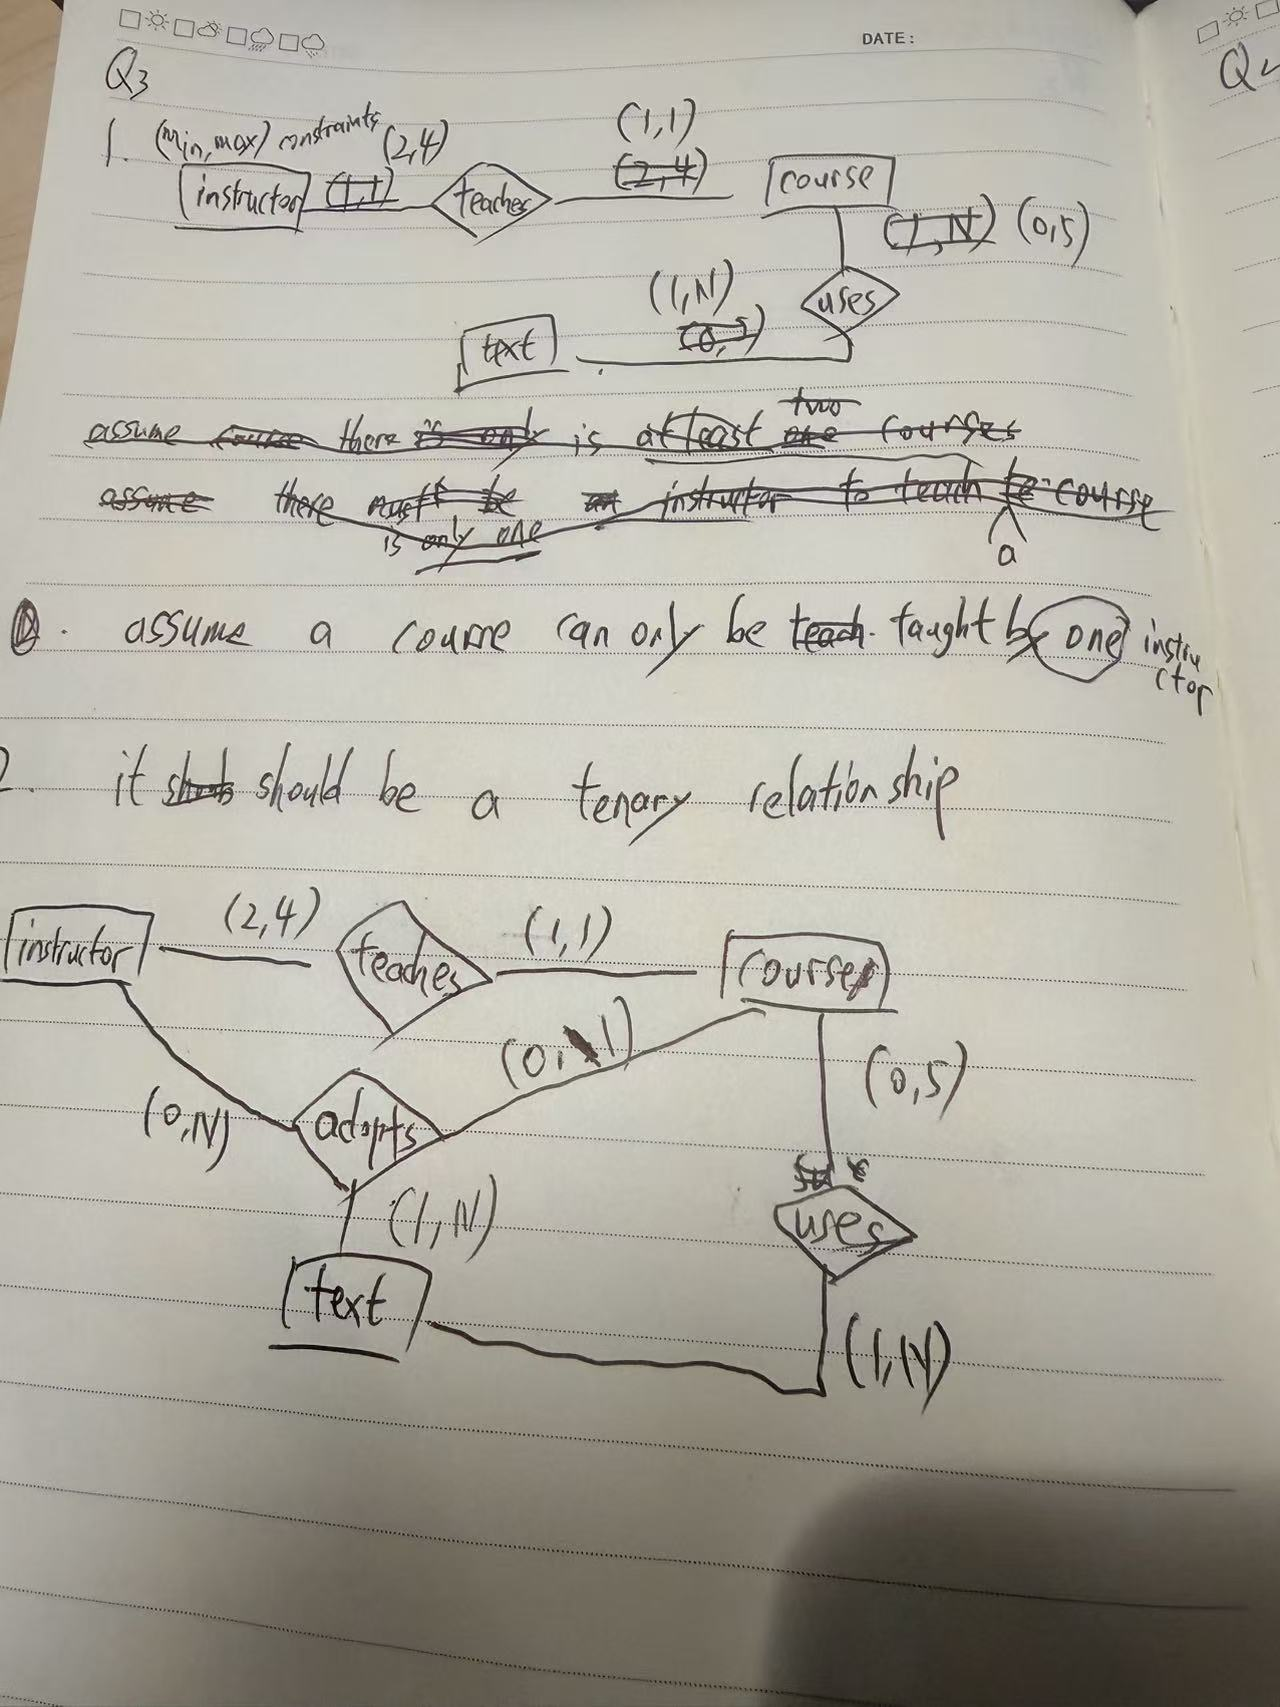 DATE:
Q3
1. (min, max) constraints
(2,4)
(1,1)
instructor (1,1) teaches (2,4) course
(1,N) (0,5)
(1,N)
uses
text (0,5)
assume course there is only is at least one two courses
assume there must be an instructor to teach te course
is only one
a
assume a course can only be teach taught by one instru
ctor
2. it should be a tenary relationship
(2,4) (1,1)
instructor teaches course
(0,1) (0,5)
(0,N) adopts
(1,N) uses
text
(1,N)